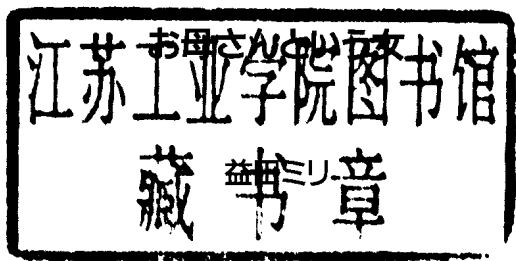 お母さんという女
江苏工业学院图书馆
益田ミリ
藏书章